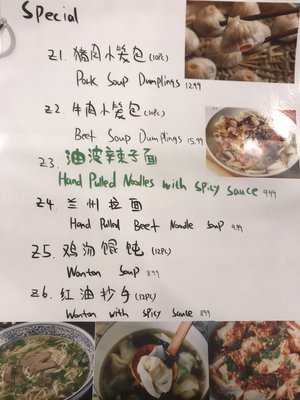 Special
Z1. 猪肉小笼包 (10PC)
Pork Soup Dumplings 12.99
Z2. 牛肉小笼包 (10PC)
Beef Soup Dumplings 15.99
Z3. 油泼辣子面
Hand Pulled Noodles with Spicy Sauce 9.99
Z4 兰州拉面
Hand Pulled Beef Noodle Soup 9.99
Z5. 鸡汤馄饨 (12PC)
Wonton Soup 8.99
Z6. 红油抄手 (12PC)
Wonton with Spicy Sauce 8.99